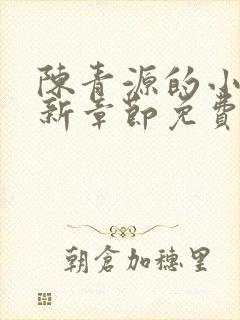 陳青源的小
新章節免費
朝倉加穗里